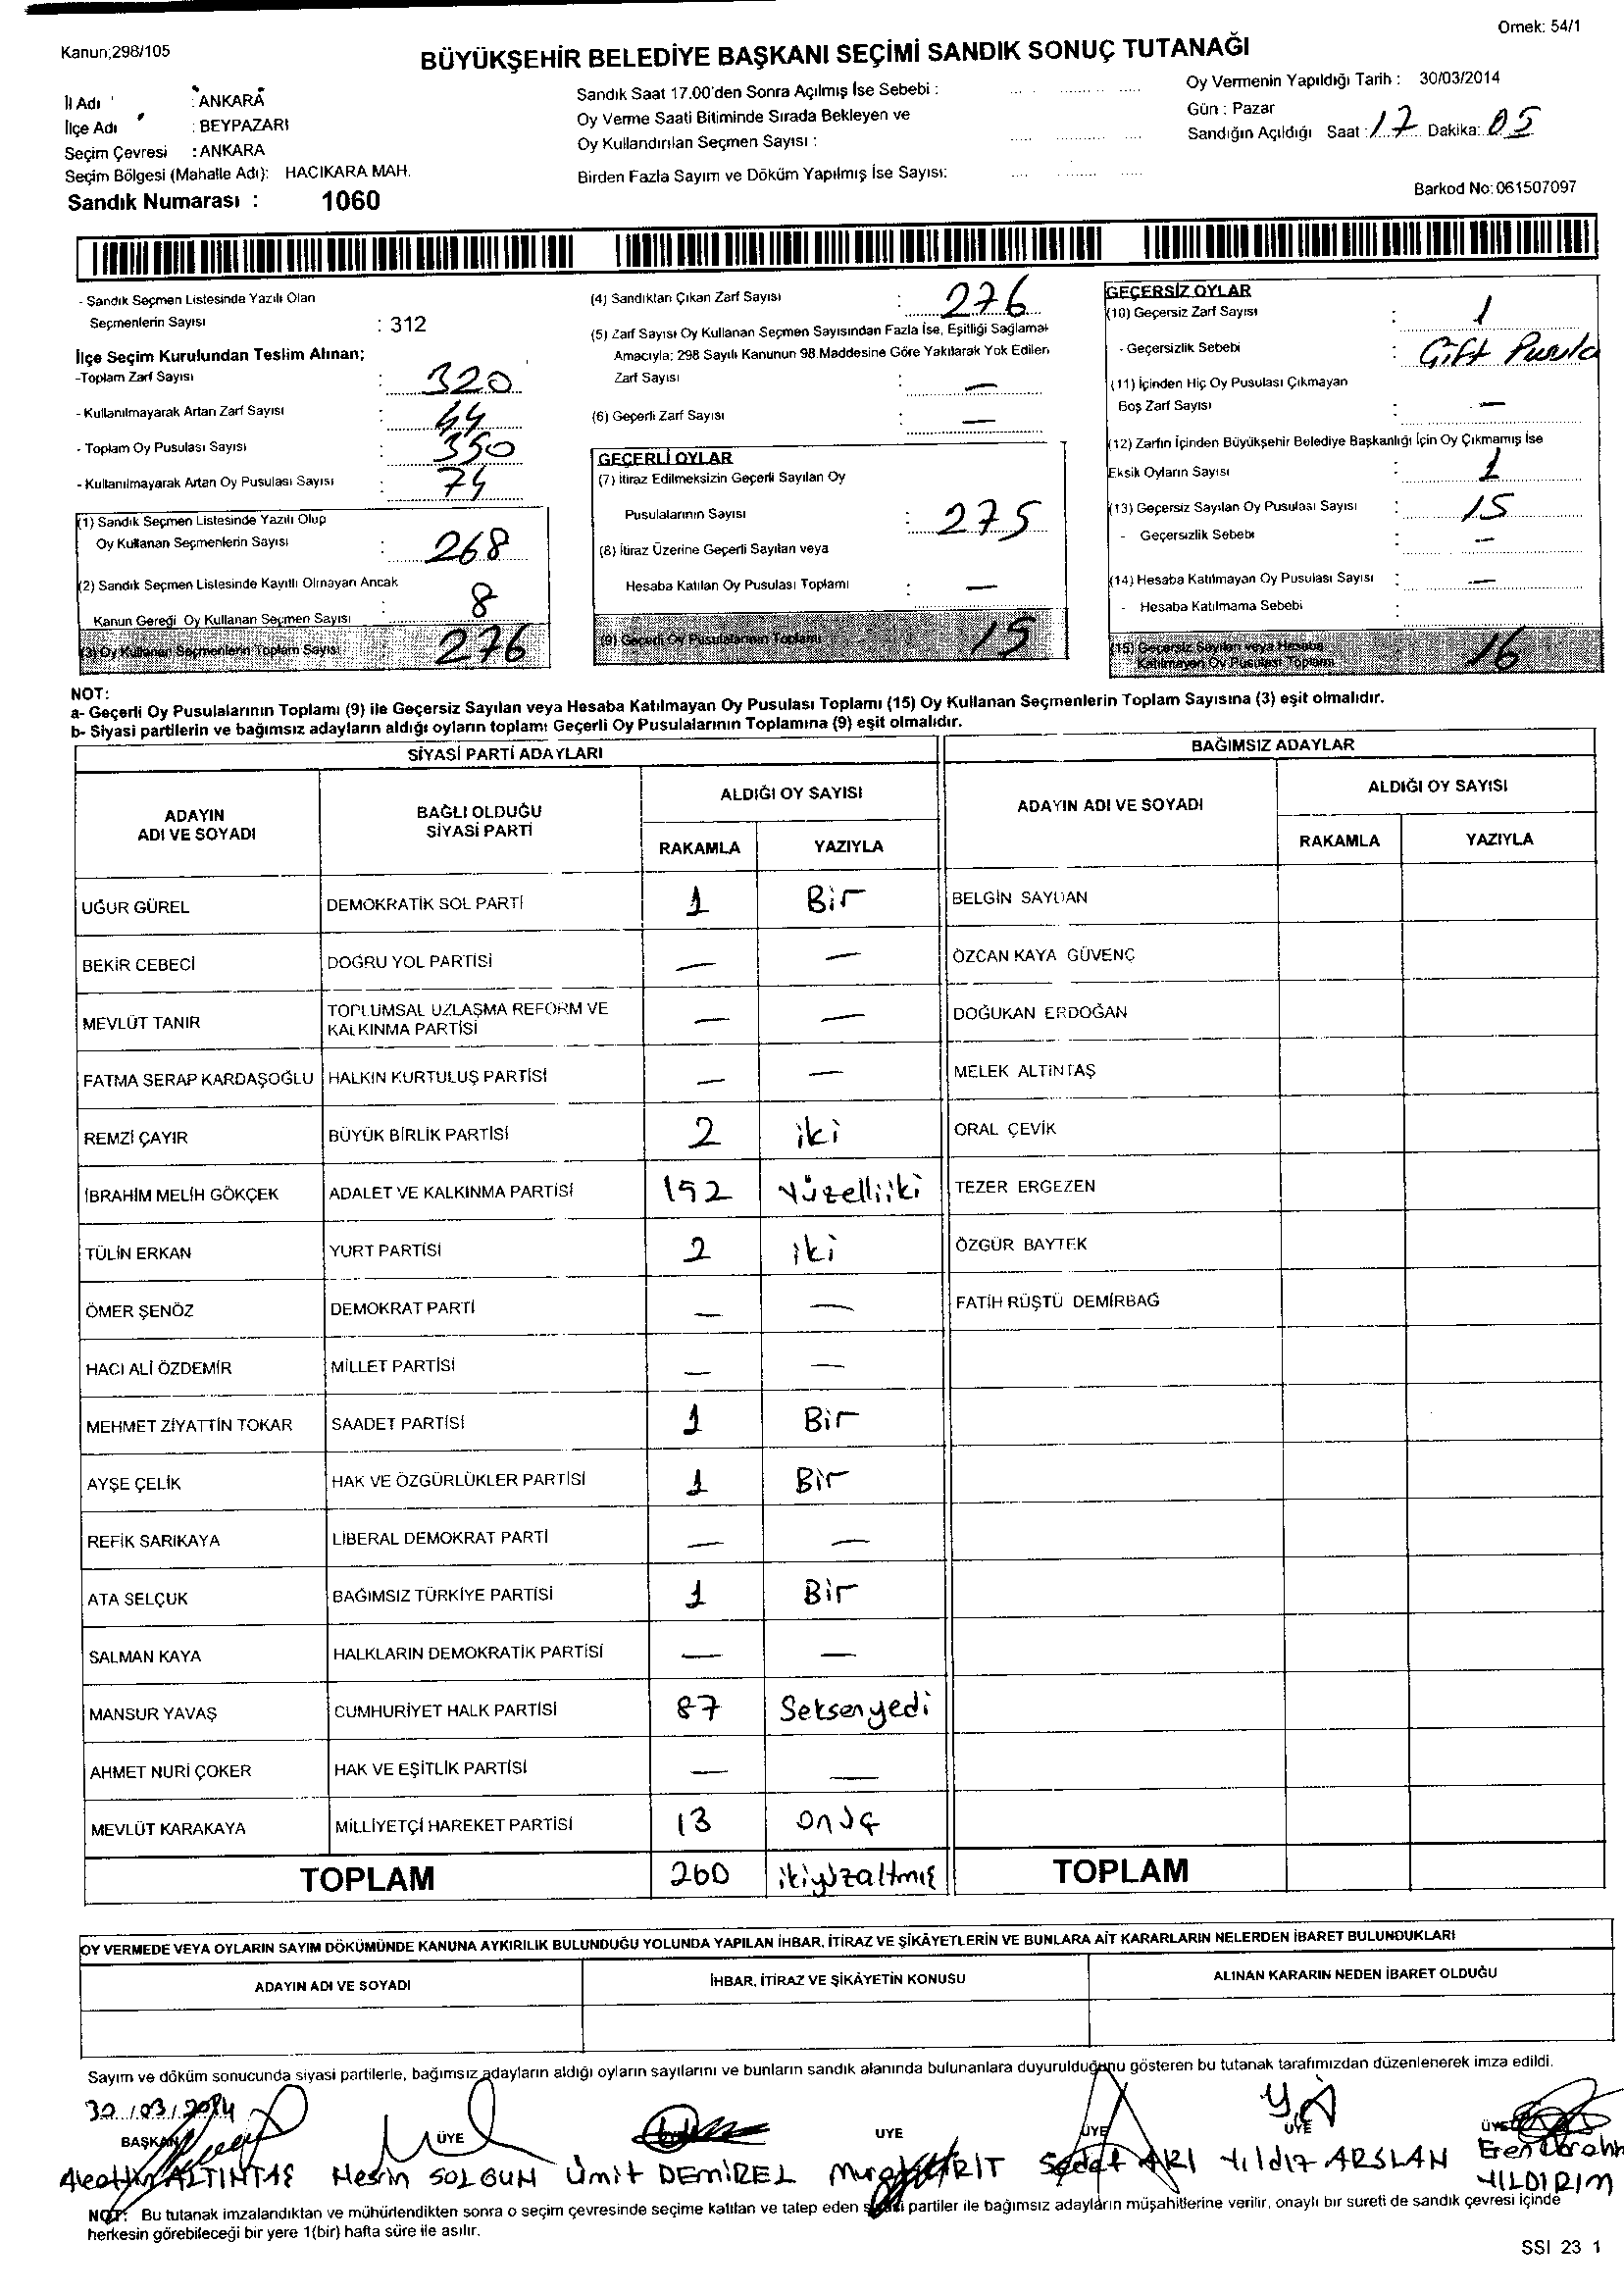 Kanun;298/105
Örnek: 54/1
BÜYÜKŞEHİR BELEDİYE BAŞKANI SEÇİMİ SANDIK SONUÇ TUTANAĞI
İl Adı : ANKARA
İlçe Adı : BEYPAZARI
Seçim Çevresi : ANKARA
Seçim Bölgesi (Mahalle Adı): HACIKARA MAH.
Sandık Numarası : 1060
Sandık Saat 17.00'den Sonra Açılmış İse Sebebi :
Oy Verme Saati Bitiminde Sırada Bekleyen ve
Oy Kullandırılan Seçmen Sayısı :
Birden Fazla Sayım ve Döküm Yapılmış İse Sayısı:
Oy Vermenin Yapıldığı Tarih : 30/03/2014
Gün : Pazar
Sandığın Açıldığı Saat : 17 Dakika: 05
Barkod No: 061507097
- Sandık Seçmen Listesinde Yazılı Olan
Seçmenlerin Sayısı : 312
İlçe Seçim Kurulundan Teslim Alınan;
-Toplam Zarf Sayısı : 320
- Kullanılmayarak Artan Zarf Sayısı : 44
- Toplam Oy Pusulası Sayısı : 350
- Kullanılmayarak Artan Oy Pusulası Sayısı : 74
(1) Sandık Seçmen Listesinde Yazılı Olup
Oy Kullanan Seçmenlerin Sayısı : 268
(2) Sandık Seçmen Listesinde Kayıtlı Olmayan Ancak
Kanun Gereği Oy Kullanan Seçmen Sayısı : 8
(3) Oy Kullanan Seçmenlerin Toplam Sayısı 276
(4) Sandıktan Çıkan Zarf Sayısı : 276
(5) Zarf Sayısı Oy Kullanan Seçmen Sayısından Fazla İse, Eşitliği Sağlamak
Amacıyla; 298 Sayılı Kanunun 98.Maddesine Göre Yakılarak Yok Edilen
Zarf Sayısı : —
(6) Geçerli Zarf Sayısı : —
GEÇERLİ OYLAR
(7) İtiraz Edilmeksizin Geçerli Sayılan Oy
Pusulalarının Sayısı : 275
(8) İtiraz Üzerine Geçerli Sayılan veya
Hesaba Katılan Oy Pusulası Toplamı : —
(9) Geçerli Oy Pusulalarının Toplamı 15
GEÇERSİZ OYLAR
(10) Geçersiz Zarf Sayısı : 1
- Geçersizlik Sebebi : Çift Pusula
(11) İçinden Hiç Oy Pusulası Çıkmayan
Boş Zarf Sayısı : —
(12) Zarfın İçinden Büyükşehir Belediye Başkanlığı İçin Oy Çıkmamış İse
Eksik Oyların Sayısı : 1
(13) Geçersiz Sayılan Oy Pusulası Sayısı : 15
- Geçersizlik Sebebi : —
(14) Hesaba Katılmayan Oy Pusulası Sayısı : —
- Hesaba Katılmama Sebebi :
(15) Geçersiz Sayılan veya Hesaba
Katılmayan Oy Pusulası Toplamı 16
NOT:
a- Geçerli Oy Pusulalarının Toplamı (9) ile Geçersiz Sayılan veya Hesaba Katılmayan Oy Pusulası Toplamı (15) Oy Kullanan Seçmenlerin Toplam Sayısına (3) eşit olmalıdır.
b- Siyasi partilerin ve bağımsız adayların aldığı oyların toplamı Geçerli Oy Pusulalarının Toplamına (9) eşit olmalıdır.
SİYASİ PARTİ ADAYLARI
BAĞIMSIZ ADAYLAR
ADAYIN ADI VE SOYADI
BAĞLI OLDUĞU SİYASİ PARTİ
ALDIĞI OY SAYISI
RAKAMLA YAZIYLA
ADAYIN ADI VE SOYADI
ALDIĞI OY SAYISI
RAKAMLA YAZIYLA
UĞUR GÜREL DEMOKRATİK SOL PARTİ 1 Bir BELGİN SAYDAN
BEKİR CEBECİ DOĞRU YOL PARTİSİ — — ÖZCAN KAYA GÜVENÇ
MEVLÜT TANIR TOPLUMSAL UZLAŞMA REFORM VE KALKINMA PARTİSİ — — DOĞUKAN ERDOĞAN
FATMA SERAP KARDAŞOĞLU HALKIN KURTULUŞ PARTİSİ — — MELEK ALTINTAŞ
REMZİ ÇAYIR BÜYÜK BİRLİK PARTİSİ 2 iki ORAL ÇEVİK
İBRAHİM MELİH GÖKÇEK ADALET VE KALKINMA PARTİSİ 152 Yüzelliiki TEZER ERGEZEN
TÜLİN ERKAN YURT PARTİSİ 2 iki ÖZGÜR BAYTEK
ÖMER ŞENÖZ DEMOKRAT PARTİ — — FATİH RÜŞTÜ DEMİRBAĞ
HACI ALİ ÖZDEMİR MİLLET PARTİSİ — —
MEHMET ZİYATTİN TOKAR SAADET PARTİSİ 1 Bir
AYŞE ÇELİK HAK VE ÖZGÜRLÜKLER PARTİSİ 1 Bir
REFİK SARIKAYA LİBERAL DEMOKRAT PARTİ — —
ATA SELÇUK BAĞIMSIZ TÜRKİYE PARTİSİ 1 Bir
SALMAN KAYA HALKLARIN DEMOKRATİK PARTİSİ — —
MANSUR YAVAŞ CUMHURİYET HALK PARTİSİ 87 Seksenyedi
AHMET NURİ ÇOKER HAK VE EŞİTLİK PARTİSİ — —
MEVLÜT KARAKAYA MİLLİYETÇİ HAREKET PARTİSİ 13 onüç
TOPLAM 260 ikiyüzaltmış TOPLAM
OY VERMEDE VEYA OYLARIN SAYIM DÖKÜMÜNDE KANUNA AYKIRILIK BULUNDUĞU YOLUNDA YAPILAN İHBAR, İTİRAZ VE ŞİKÂYETLERİN VE BUNLARA AİT KARARLARIN NELERDEN İBARET BULUNDUKLARI
ADAYIN ADI VE SOYADI İHBAR, İTİRAZ VE ŞİKÂYETİN KONUSU ALINAN KARARIN NEDEN İBARET OLDUĞU
Sayım ve döküm sonucunda siyasi partilerle, bağımsız adayların aldığı oyların sayılarını ve bunların sandık alanında bulunanlara duyurulduğunu gösteren bu tutanak tarafımızdan düzenlenerek imza edildi.
30/03/2014
BAŞKAN ÜYE ÜYE ÜYE ÜYE ÜYE
ALTINTAŞ Nesrin SOLGUN Ümit DEMİREL Sedat ARI Yıldız ARSLAN Eren
YILDIRIM
NOT: Bu tutanak imzalandıktan ve mühürlendikten sonra o seçim çevresinde seçime katılan ve talep eden siyasi partiler ile bağımsız adayların müşahitlerine verilir, onaylı bir sureti de sandık çevresi içinde
herkesin görebileceği bir yere 1(bir) hafta süre ile asılır.
SSI 23 1